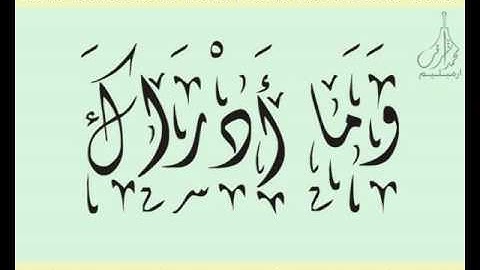 وَمَا أَدْرَاكَ
ارميليم